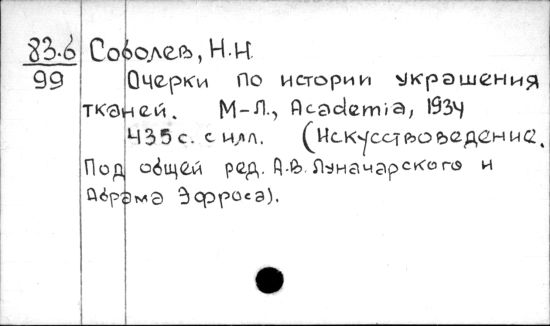 83.6 Соболев, Н.Н.
99 Очерки по истории украшения
тканей. М-Л., Academia, 1934
435 с. с илл. (Искусствоведение.
Под общей ред. А.В. Луначарского и
Абрама Эфроса).